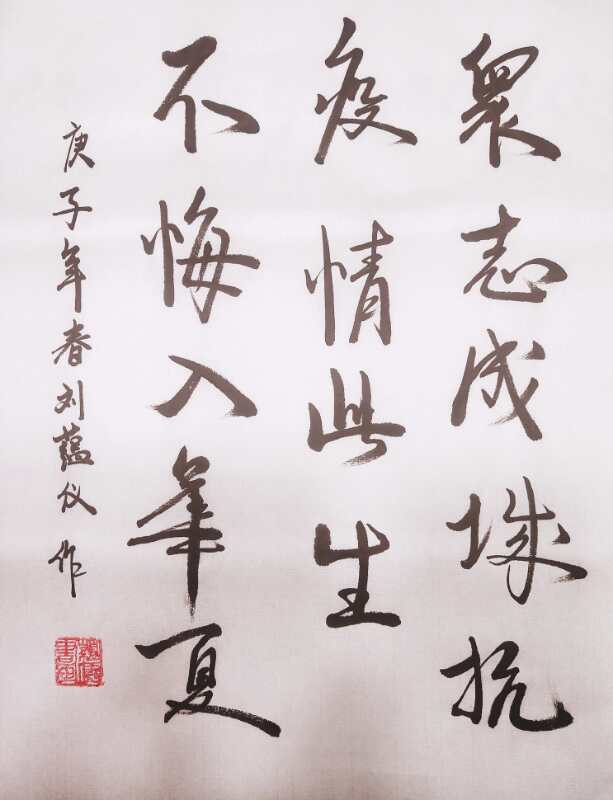 衆志成城抗
疫情此生
不悔入華夏
庚子年春刘蕴仪作